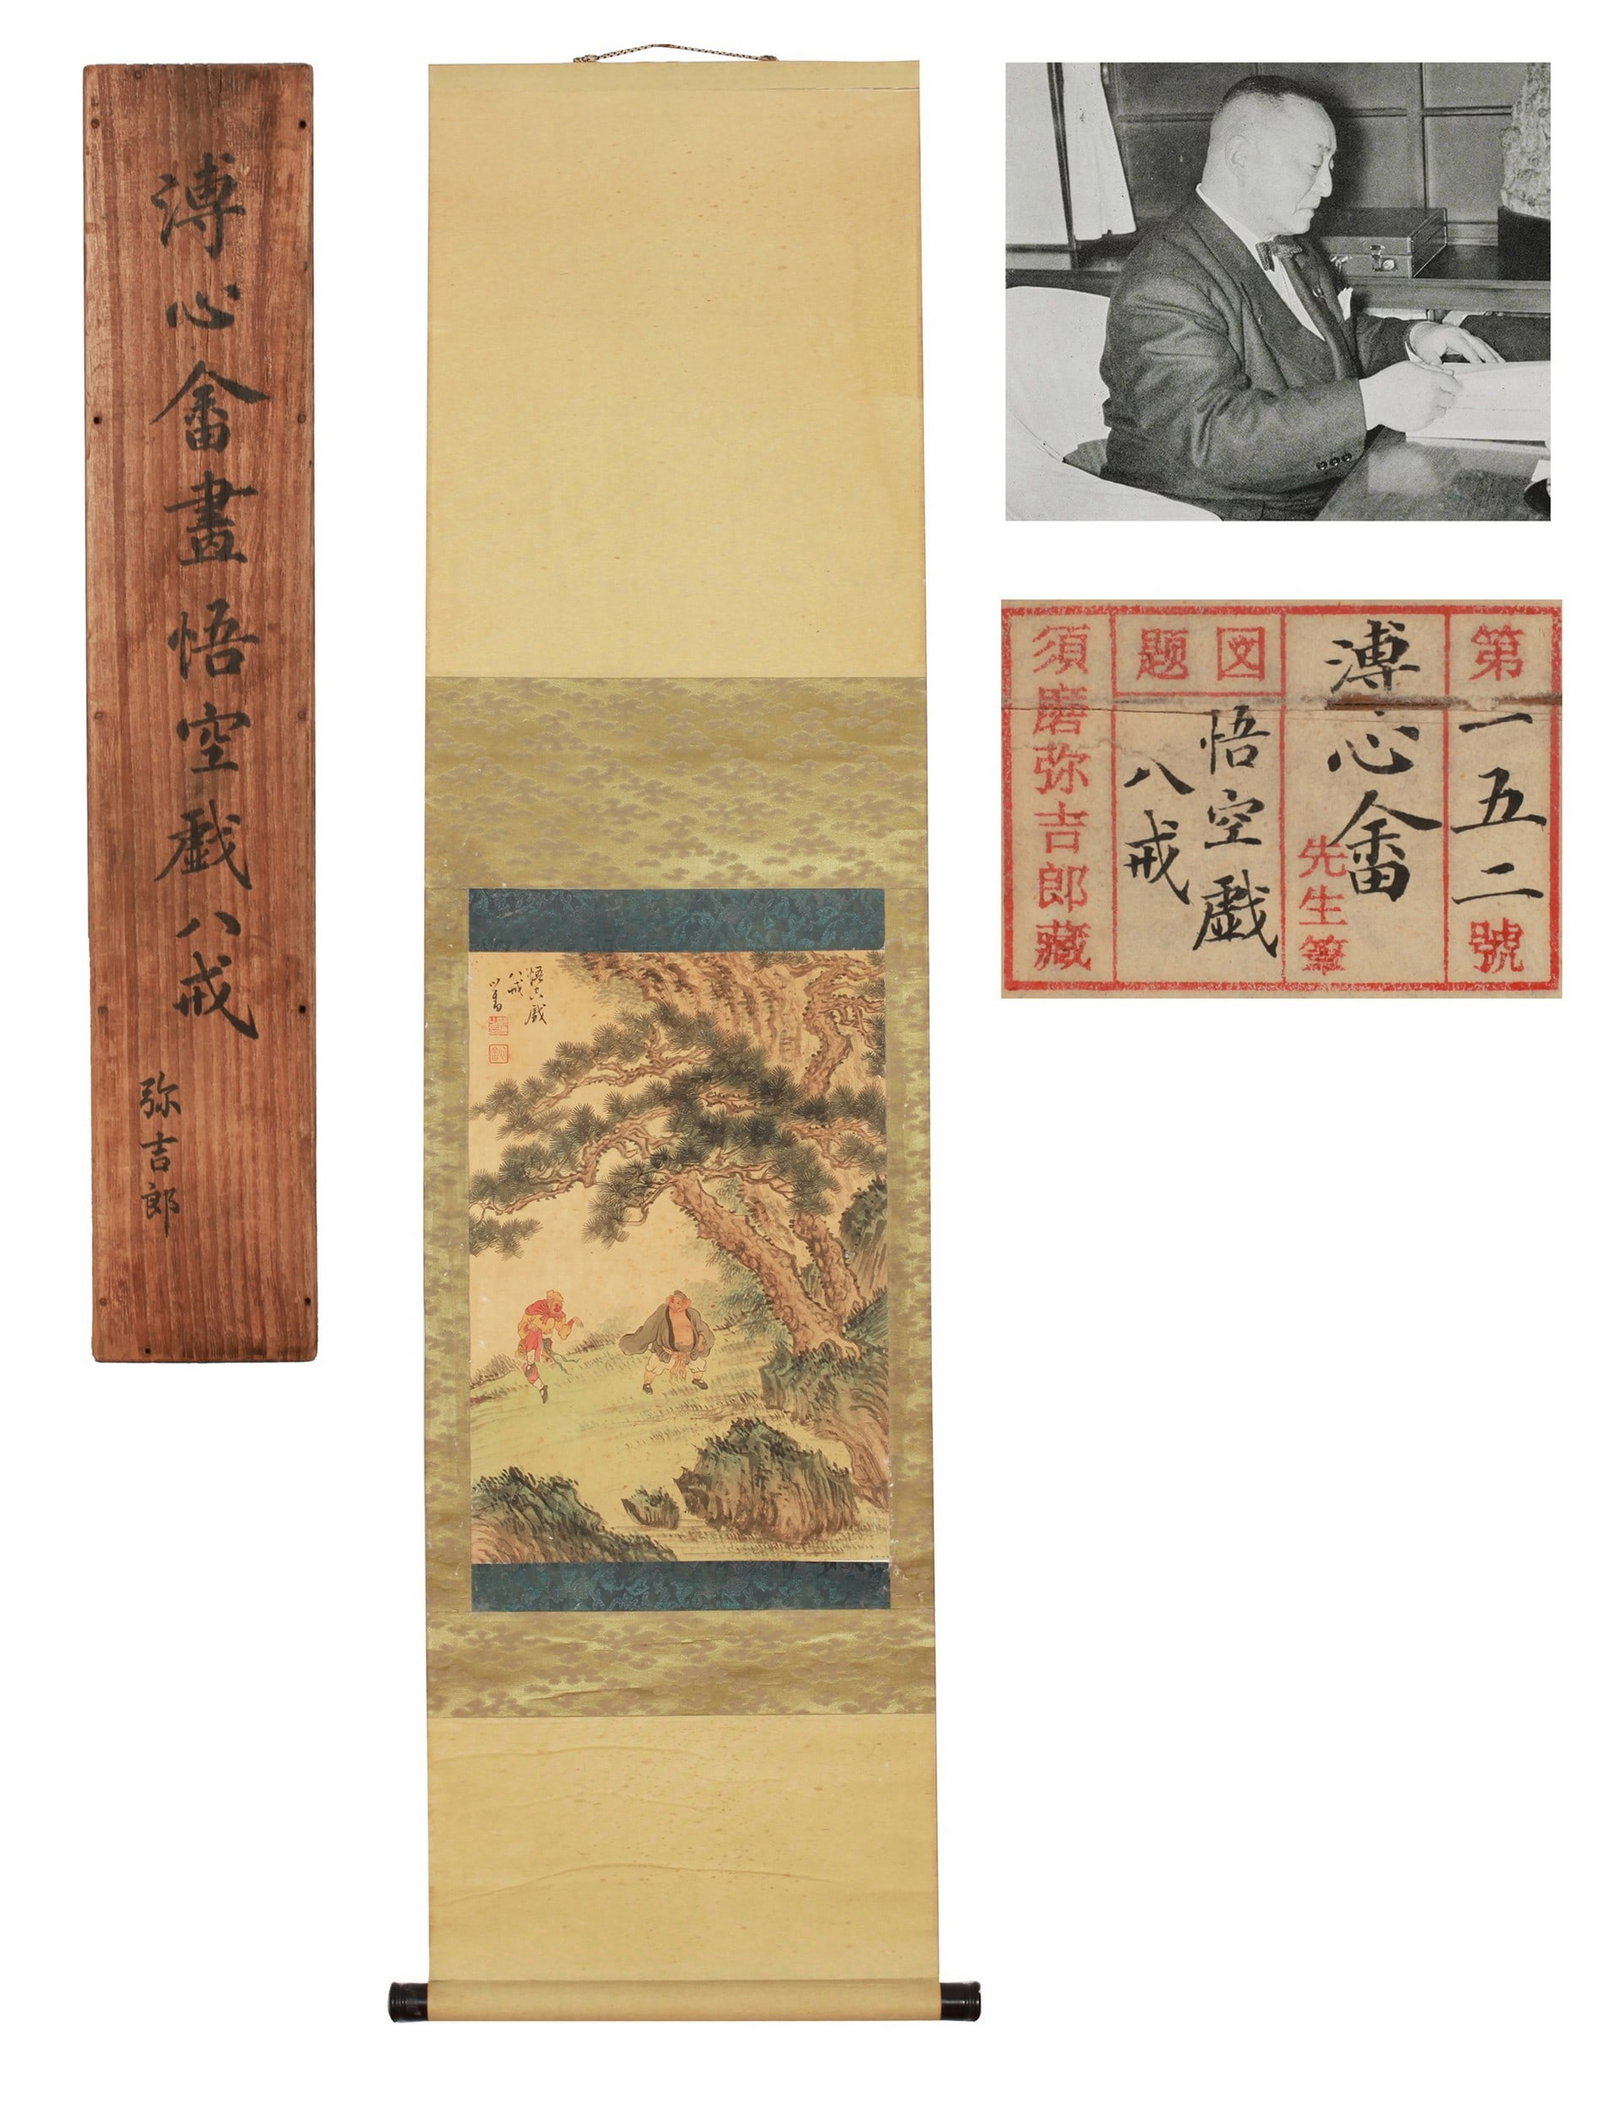 溥心畬畫悟空戯八戒
弥吉郎
悟空戯
八戒
心畬
第一五二號
溥心畬先生筆
図題
悟空戯
八戒
須磨弥吉郎藏